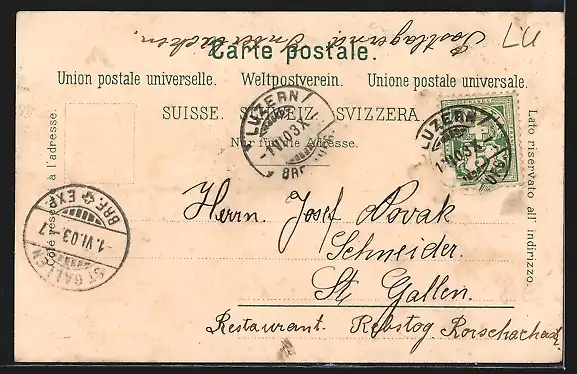 Postlagernd Interlacken.
Carte postale.
Union postale universelle. Weltpostverein. Unione postale universale.
SUISSE. SCHWEIZ. SVIZZERA.
Nur für die Adresse.
Côté réservé à l'adresse.
Lato riservato all' indirizzo.
LUZERN
-1.VI.03.X
BRF.
LUZERN
1.VI.03.X
5
ST. GALLEN
-1.VI.03.-7
BRF. EXP.
Herrn. Josef Novak
Schneider.
St. Gallen.
Restaurant. Rebstog Rorschach